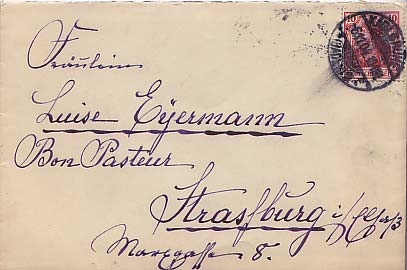 Fräulein
Luise Eyermann
Bon Pasteur
Strassburg i/Elsaß
8.
10 10